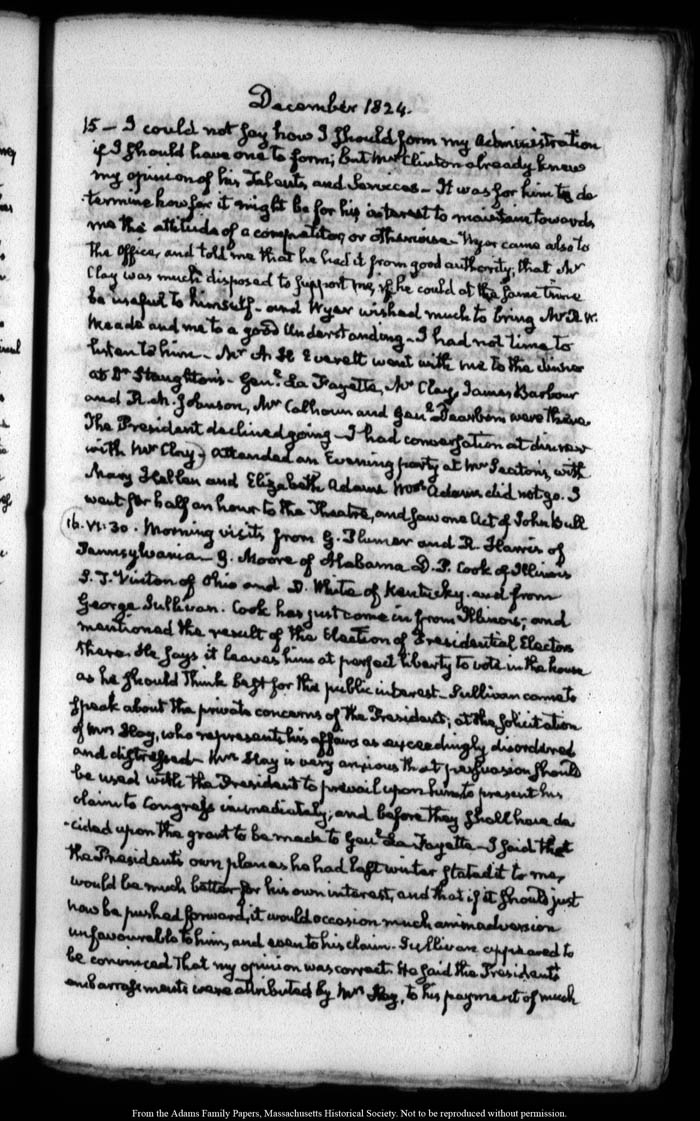 December 1824.
15 – I could not say how I should form my Administration
if I should have one to form; but Mr. Clinton already knew
my opinion of his Talents and Services – It was for him to de
termine how far it might be for his interest to maintain towards
me the attitude of a competitor, or otherwise – Wyer came also to
the Office, and told me that he had it from good authority; that Mr
Clay was much disposed to support me, if he could at the same time
be useful to himself – and Wyer wished much to bring Mr. R. W.
Meade and me to a good Understanding – I had not time to
listen to him – Mr A. H. Everett went with me to the dinner
at Dr Staughton's – Genl. La Fayette, Mr Clay, James Barbour
and R. M. Johnson, Mr Calhoun and Genl. Dearborn were there
The President declined going – I had conversation at dinner
with Mr Clay – Attended an Evening party at Mr Seaton's, with
Mary Hellen and Elizabeth Adams Mrs Adams did not go. I
went for half an hour to the Theatre, and saw one Act of John Bull
16. VI:30. Morning visits from G. Plumer and R. Harris of
Pennsylvania – G. Moore of Alabama D. P. Cook of Illinois
S. F. Vinton of Ohio and D. White of Kentucky. and from
George Sullivan. Cook has just come in from Illinois; and
mentioned the result of the Election of Presidential Electors
there. He says it leaves him at perfect liberty to vote in the house
as he should think best for the public interest – Sullivan came to
speak about the private concerns of the President; at the solicitation
of Mrs Hay, who represents his affairs as exceedingly disordered
and distressed – Mrs Hay is very anxious that persuasion should
be used with the President to prevail upon him to present his
claim to Congress immediately; and before they shall have de
-cided upon the grant to be made to Genl. La Fayette – I said that
the President's own plan as he had last winter stated it to me,
would be much better for his own interest, and that if it should just
now be pushed forward, it would occasion much animadversion
unfavourable to him, and even to his claim. Sullivan appeared to
be convinced that my opinion was correct. He said the President's
embarrassments were attributed by Mrs Hay, to his payment of much
From the Adams Family Papers, Massachusetts Historical Society. Not to be reproduced without permission.